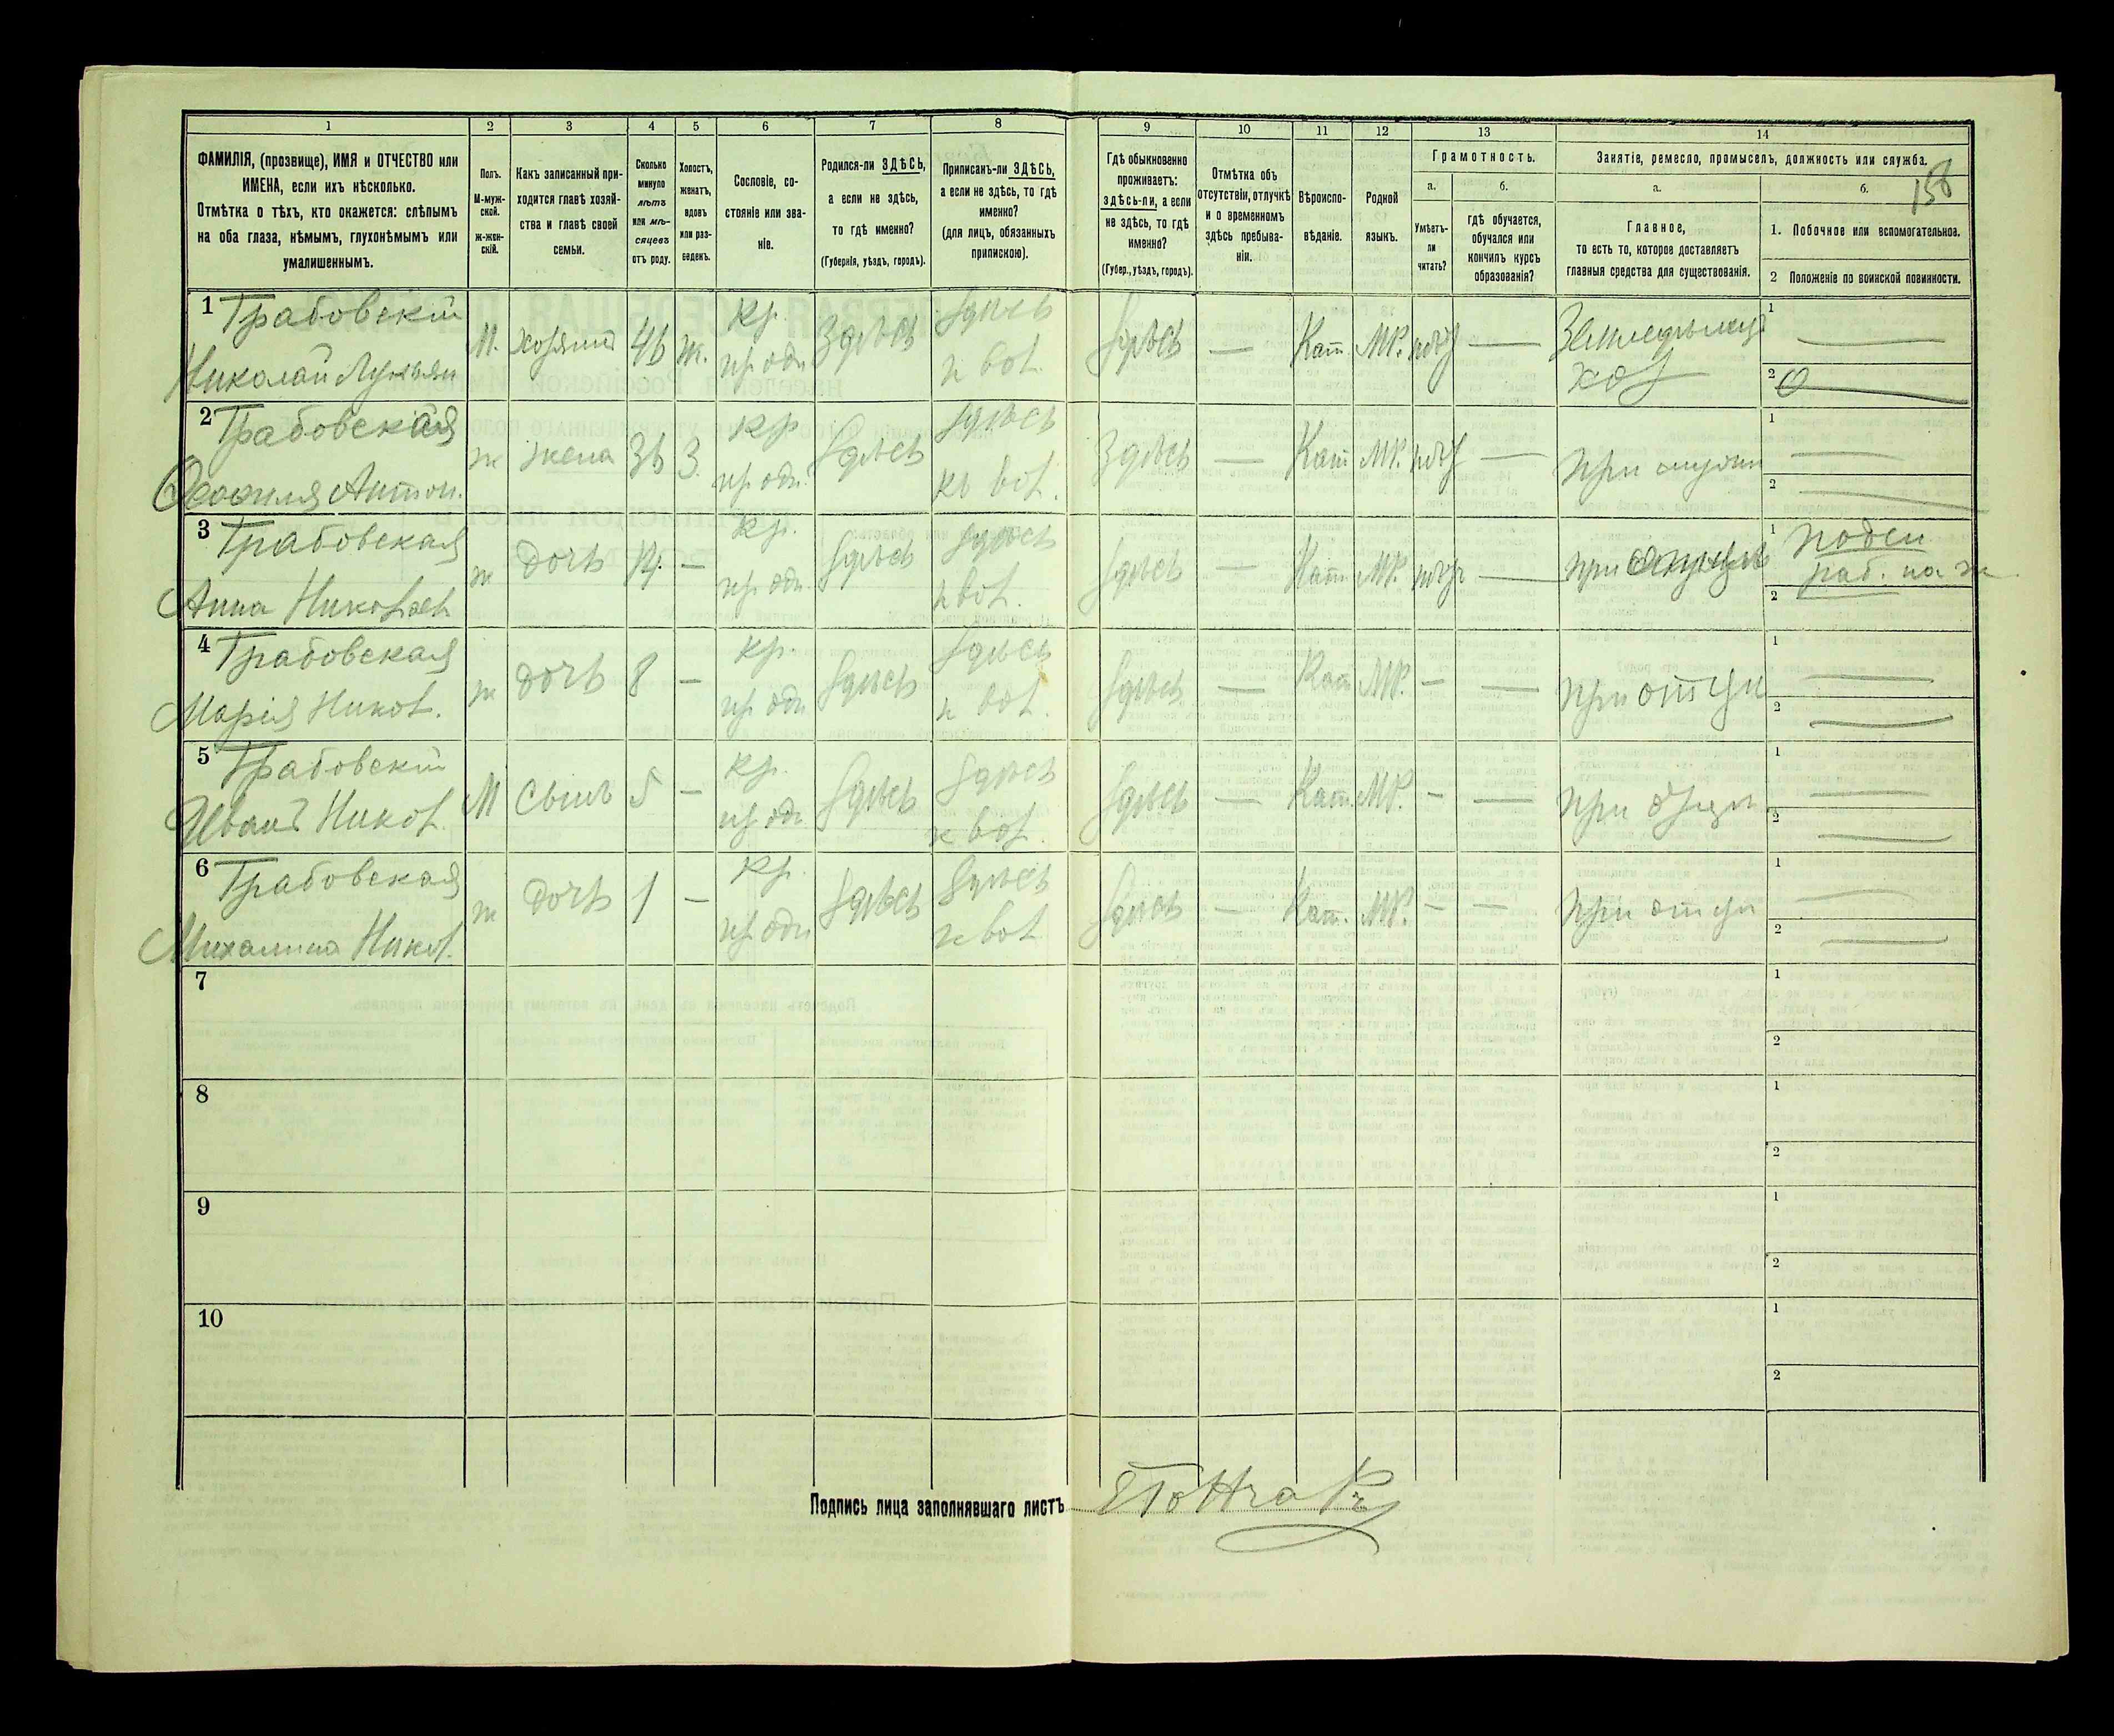 1 2 3 4 5 6 7 8 9 10 11 12 13 14
ФАМИЛІЯ, (прозвище), ИМЯ и ОТЧЕСТВО или
ИМЕНА, если ихъ нѣсколько.
Отмѣтка о тѣхъ, кто окажется: слѣпымъ
на оба глаза, нѣмымъ, глухонѣмымъ или
умалишеннымъ.
Полъ.
М-муж-
ской.
ж-жен-
скій.
Какъ записанный при-
ходится главѣ хозяй-
ства и главѣ своей
семьи.
Сколько
минуло
лѣтъ
или мѣ-
сяцевъ
отъ роду.
Холостъ,
женатъ,
вдовъ
или раз-
веденъ.
Сословіе, со-
стояніе или зва-
ніе.
Родился-ли ЗДѢСЬ,
а если не здѣсь,
то гдѣ именно?
(Губернія, уѣздъ, городъ).
Приписанъ-ли ЗДѢСЬ,
а если не здѣсь, то гдѣ
именно?
(для лицъ, обязанныхъ
припискою).
Гдѣ обыкновенно
проживаетъ:
здѣсь-ли, а если
не здѣсь, то гдѣ
именно?
(Губер., уѣздъ, городъ).
Отмѣтка объ
отсутствіи, отлучкѣ
и о временномъ
здѣсь пребыва-
ніи.
Вѣроиспо-
вѣданіе.
Родной
языкъ.
Грамотность.
а.
Умѣетъ-
ли
читать?
б.
гдѣ обучается,
обучался или
кончилъ курсъ
образованія?
Занятіе, ремесло, промыселъ, должность или служба.
158
а.
Главное,
то есть то, которое доставляетъ
главныя средства для существованія.
б.
1. Побочное или вспомогательное.
2 Положеніе по воинской повинности.
1 Грабовскій
Николай Лукьян
М. хозяинъ 46 ж. кр. Здѣсь здѣсь Здѣсь — Кат. МР. —
к вол.
1 —
2
2 Грабовская
Антон.
ж жена 36 З. кр Здѣсь здѣсь Здѣсь — Кат МР. —
къ вол.
1 —
2 —
3 Грабовская
Анна Николаев
ж дочь — кр. Здѣсь здѣсь Здѣсь — Кат. МР. —
к вол.
1
раб. на
2 —
4 Грабовская
Марія Никол.
ж дочь 8 — кр. Здѣсь здѣсь Здѣсь — Кат МР. — — при отцѣ
к вол.
1 —
2 —
5 Грабовскій
Иванъ Никол.
М сынъ 5 — кр. Здѣсь здѣсь Здѣсь — Кат. МР. — — при отцѣ
к вол.
1 —
2 —
6 Грабовская
Михалина Никол.
ж дочь 1 — кр. Здѣсь здѣсь Здѣсь — Кат. МР. — — при отцѣ
к вол
1 —
2 —
7 1
2
8 1
2
9 1
2
10 1
2
Подпись лица заполнявшаго листъ